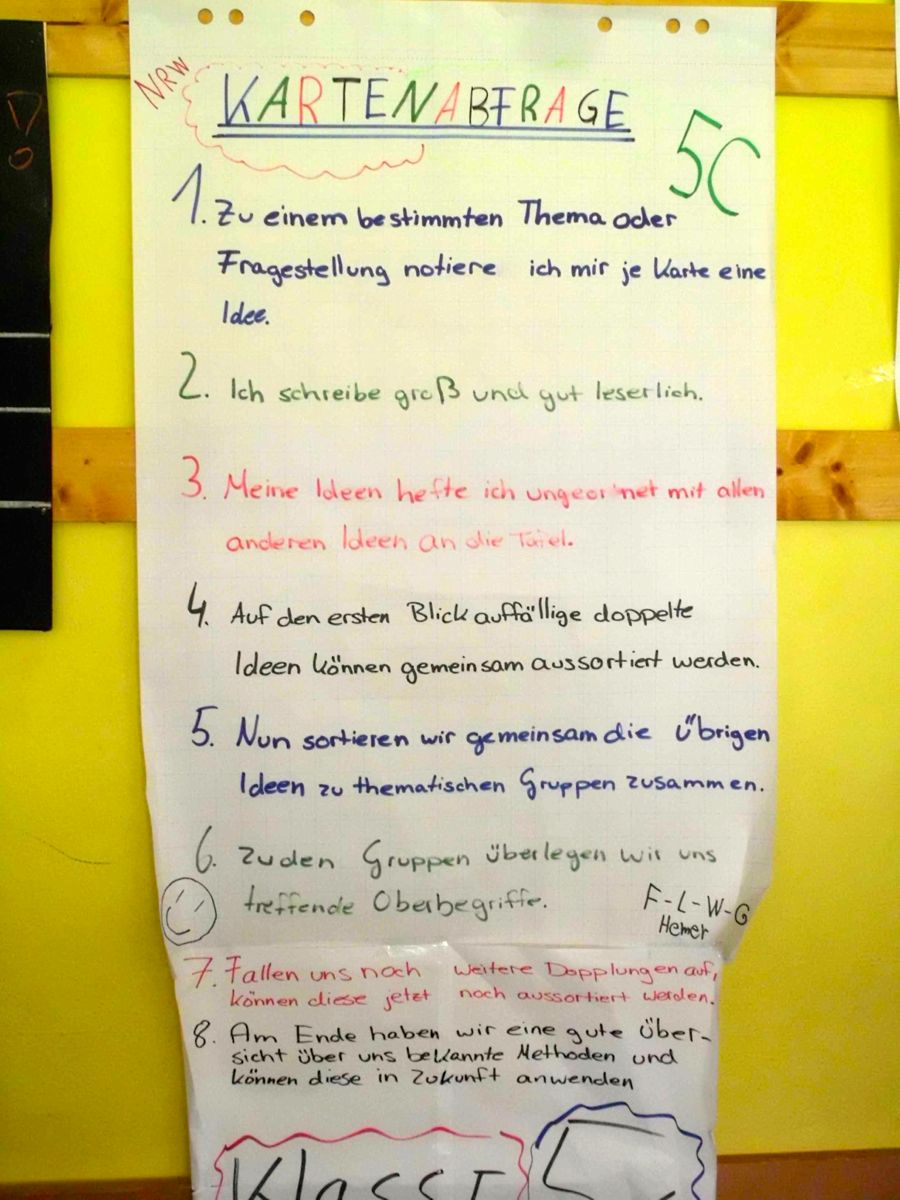 NRW
KARTENABFRAGE
5C
1. Zu einem bestimmten Thema oder
Fragestellung notiere ich mir je Karte eine
Idee.
2. Ich schreibe groß und gut leserlich.
3. Meine Ideen hefte ich ungeordnet mit allen
anderen Ideen an die Tafel.
4. Auf den ersten Blick auffällige doppelte
Ideen können gemeinsam aussortiert werden.
5. Nun sortieren wir gemeinsam die übrigen
Ideen zu thematischen Gruppen zusammen.
6. Zu den Gruppen überlegen wir uns
treffende Oberbegriffe.
F-L-W-G
Hemer
7. Fallen uns noch weitere Dopplungen auf,
können diese jetzt noch aussortiert werden.
8. Am Ende haben wir eine gute Über-
sicht über uns bekannte Methoden und
können diese in Zukunft anwenden
Klasse